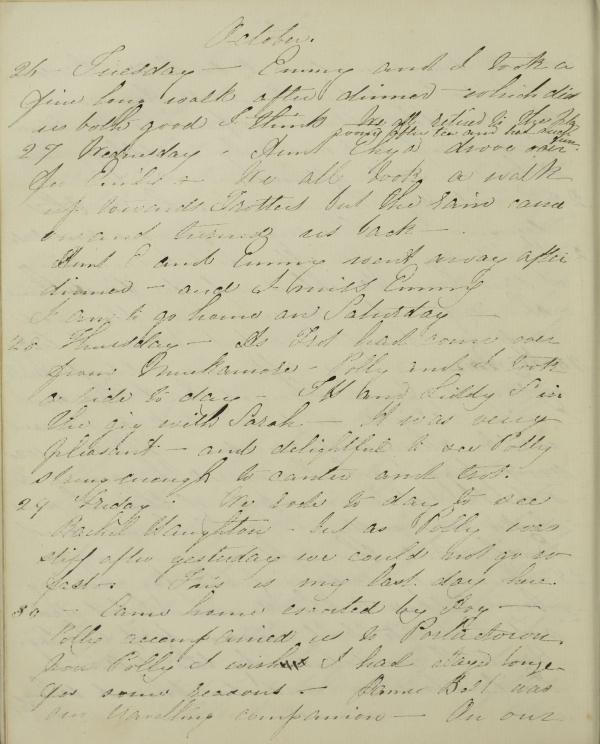 October.
26 - Tuesday - Emmy and I took a
fine long walk after dinner - which did
us both good I think We all
young after tea and had such fun
27 Wednesday - Aunt Eliza drove over
for - We all took a walk
up towards Trotters but the rain came
on and turned us back -
Aunt E and Emmy went away after
dinner - and I miss Emmy
I am to go home on Saturday -
28 Thursday - As had come over
from - Polly and I took
a ride to day - and Liddy in
the gig with Sarah - It was very
pleasant - and delightful to see Polly
strong enough to canter and trot.
29 Friday - We rode to day to see
Rachel Haughton - but as Polly was
stiff after yesterday we could not go so
fast - This is my last day here.
30 - Came home escorted by
accompanied us to Portadown.
Poor Polly I wish I had stayed longer
for some reasons - Bell was
our travelling companion - On our